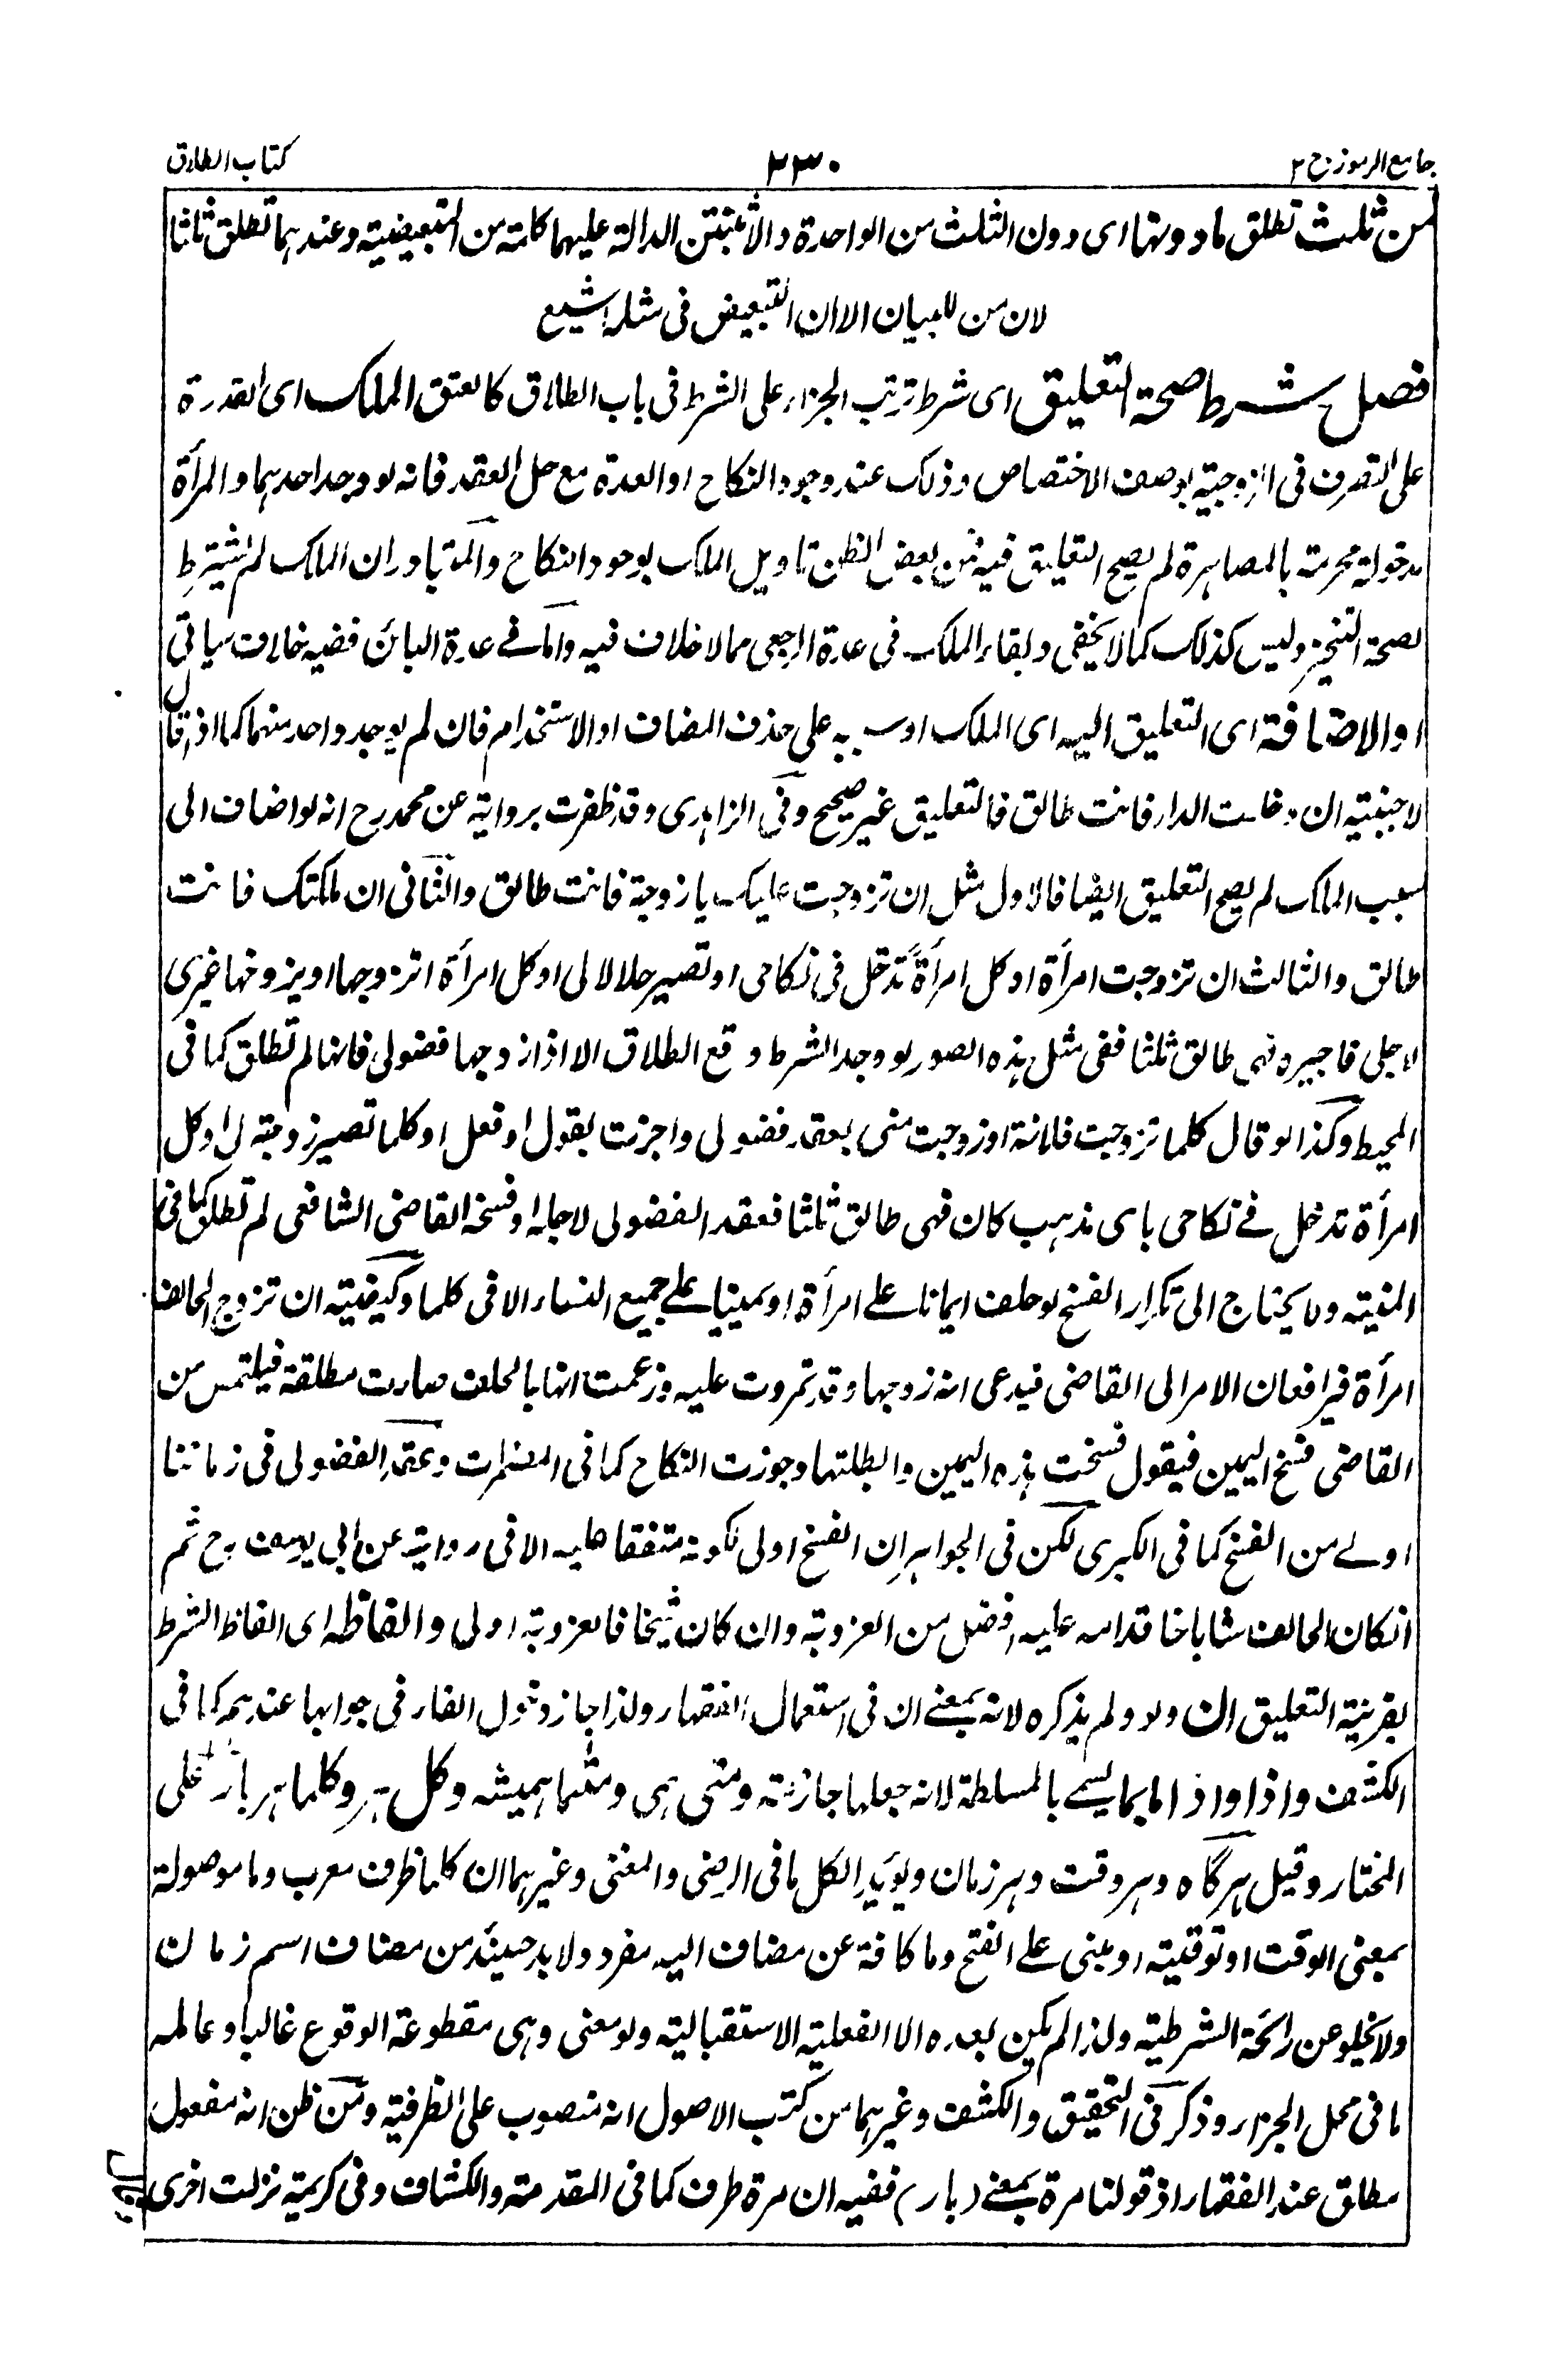 جامع الرموز ج ٢
٢٣٠
كتاب الطلاق
من ثلث تطلق ما دونها اى دون الثلث من الواحدة والاثنتين الدالة عليهما كلمة من التبعيضية وعندهما تطلق ثلثا
لان من للبيان الا ان التبعيض فى مثله اشيع
فصل شرط صحة التعليق اى شرط ترتب الجزاء على الشرط فى باب الطلاق كالعتق الملك اى القدرة
على التصرف فى الزوجية بوصف الاختصاص وذلك عند وجود النكاح او العدة مع حل العقد فانه لو وجد احدهما والمرأة
مدخولة محرمة بالمصاهرة لم يصح التعليق فمن بعض الظن تاويل الملك بوجود النكاح والمتبادر ان الملك لم يشترط
لصحة التنجيز وليس كذلك كما لا يخفى وبقاء الملك فى عدة الرجعى مما لا خلاف فيه واما فے عدة البائن ففيه خلاف سياتى
او الاضافة اى التعليق اليه اى الملك او سببه على حذف المضاف او الاستخدام فان لم يوجد واحد منهما كما اذا قال
لاجنبية ان دخلت الدار فانت طالق فالتعليق غير صحيح وفى الزاهدى وقد ظفرت برواية عن محمد رح انه لو اضاف الى
سبب الملك لم يصح التعليق ايضا فالاول مثل ان تزوجت عليك يا زوجة فانت طالق والثانى ان ملكتك فانت
طالق والثالث ان تزوجت امرأة او كل امرأة تدخل فى نكاحى او تصير حلالا لى او كل امرأة اتزوجها او يزوجها غيرى
لاجلى فاجيزه فهى طالق ثلثا ففى مثل هذه الصور لو وجد الشرط وقع الطلاق الا اذا زوجها فضولى فانها لم تطلق كما فى
المحيط وكذا لو قال كلما تزوجت فلانة او زوجت منى بعقد فضولى واجزت بقول او فعل او كلما تصير زوجة لى او كل
امرأة تدخل فے نكاحى باى مذهب كان فهى طالق ثلثا فعقد الفضولى لاجله او فسخه القاضى الشافعى لم تطلق كما فى
المنية ولا يحتاج الى تكرار الفسخ لو حلف ايمانا على امرأة او يمينا على جميع النساء الا فى كلما وكيفيته ان تزوج الحالف
امرأة فيرافعان الامر الى القاضى فيدعى انه زوجها وقد تمردت عليه وزعمت انها بالحلف صارت مطلقة فيلتمس من
القاضى فسخ اليمين فيقول فسخت هذه اليمين وابطلتها وجوزت النكاح كما فى المضمرات وعقد الفضولى فى زماننا
اولے من الفسخ كما فى الكبرى لكن فى الجواهر ان الفسخ اولى لكونه متفقا عليه الا فى رواية عن ابى يوسف رح ثم
انكان الحالف شابا فاقدامه عليه افضل من العزوبة وان كان شيخا فالعزوبة اولى والفاظه اى الفاظ الشرط
بقرينة التعليق ان ولو ولم يذكره لانه بمعنے ان فى استعمال الفقهاء ولذا جاز دخول الفاء فى جوابها عندهم كما فى
الكشف واذا واذاما بما يسمے بالمسلطة لانه جعلها جازمة ومتى ومتما هميشه وكل هر وكلما هر بار على
المختار وقيل هرگاه وهر وقت وهر زمان ويؤيد الكل ما فى الرضى والمغنى وغيرهما ان كلما ظرف معرب وما موصولة
بمعنى الوقت او توقيتية او مبنى على الفتح وما كافة عن مضاف اليه مفرد ولا بد حينئذ من مضاف اسم زمان
ولا يخلو عن رائحة الشرطية ولذا لم يكن بعده الا الفعلية الاستقبالية ولو معنى وهى مقطوعة الوقوع غالبا وعامله
ما فى محل الجزاء وذكر فى التحقيق والكشف وغيرهما من كتب الاصول انه منصوب على الظرفية ومن ظن انه مفعول
مطلق عند الفقهاء اذ قولنا مرة بمعنے (بار) ففيه ان مرة ظرف كما فى المقدمة والكشاف وفى كريمة نزلت اخرى